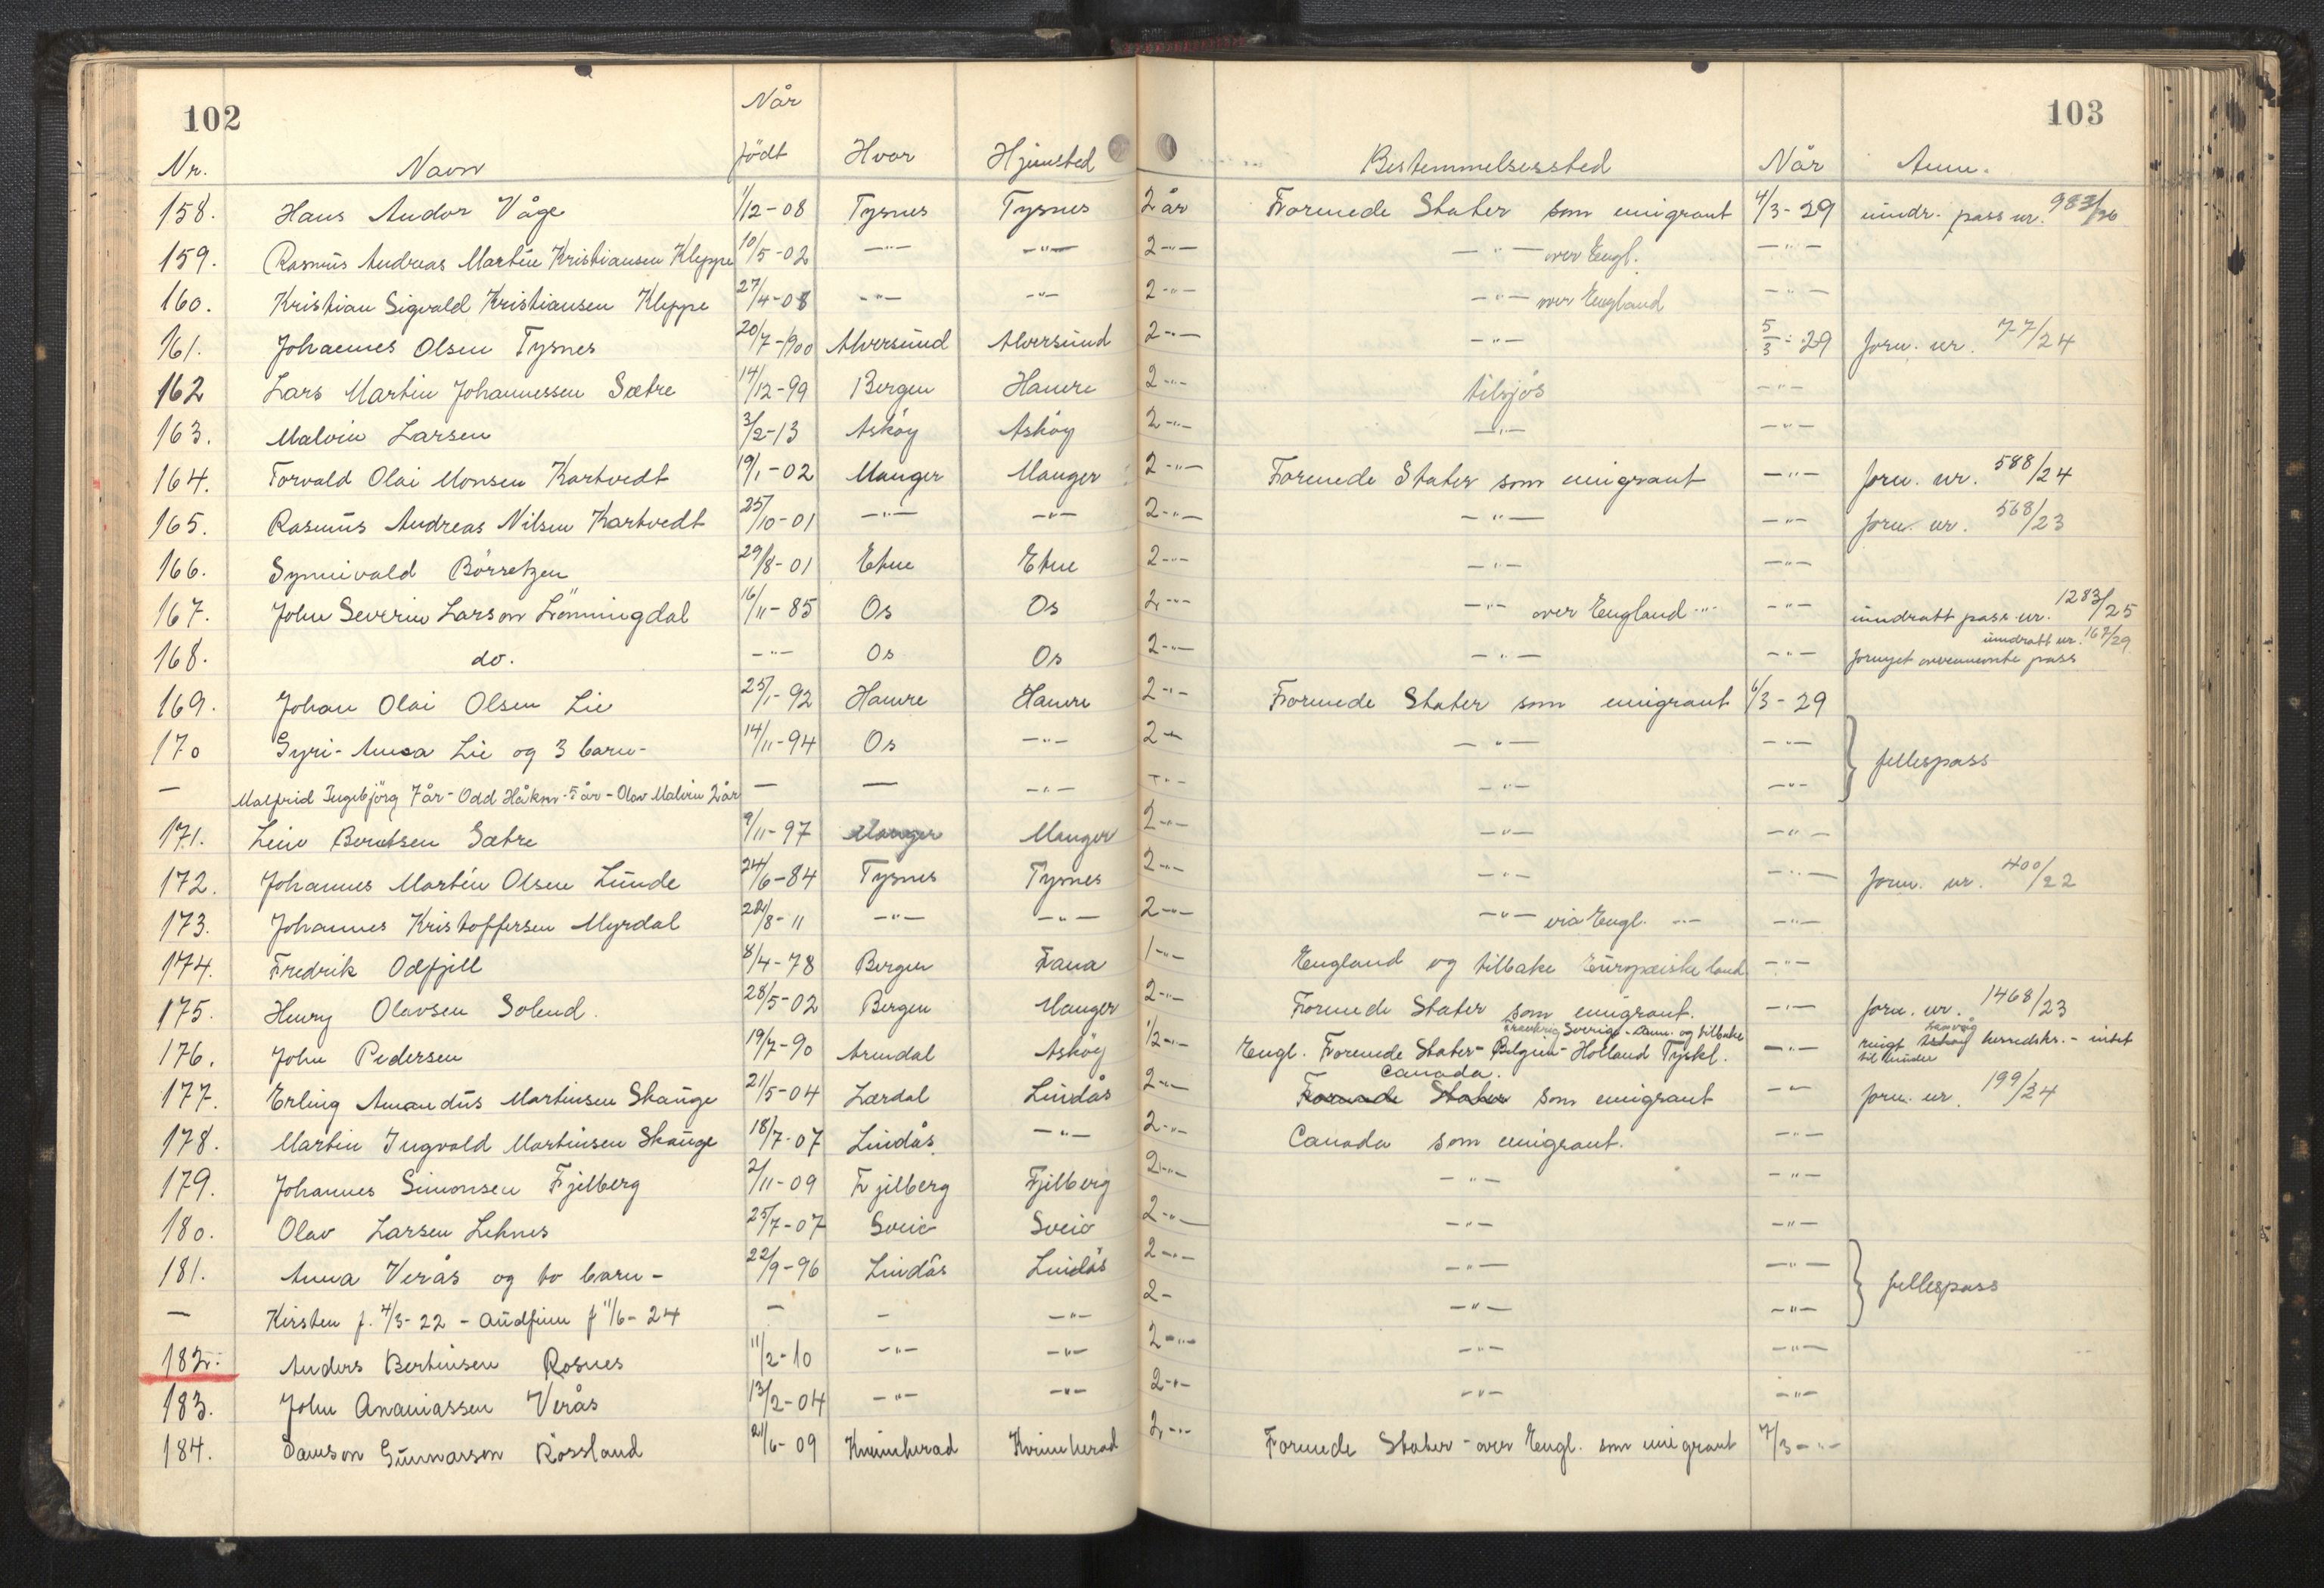 102
103
Når
Nr. Navn født Hvor Hjemsted Bestemmelsessted Når Anm.
158. Hans Andor Våge 1/12-08 Tysnes Tysnes 2 år Forenede Stater som emigrant 4/3-29 inndr. pass nr. 983/26
159. Rasmus Andreas Martin Kristiansen Kleppe 10/5-02 -"- -"- 2-"- -"- over Engl. -"-
160. Kristian Sigvald Kristiansen Kleppe 27/4-08 -"- -"- 2-"- -"- over England -"-
161. Johannes Olsen Tysnes 20/7-1900 Alversund Alversund 2-"- -"- 5/3-29 forn. nr. 77/24
162 Lars Martin Johannessen Sætre 14/12-99 Bergen Hamre 2-"- tilsjøs -"-
163. Malvin Larsen 3/2-13 Askøy Askøy 2-"- -"- -"-
164. Torvald Olai Monsen Kartvedt 19/1-02 Manger Manger 2-"- Forenede Stater som emigrant -"- forn. nr. 588/24
165. Rasmus Andreas Nilsen Kartvedt 25/10-01 -"- -"- 2-"- -"- -"- forn. nr. 568/23
166. Synnivald Børretzen 29/8-01 Etne Etne 2-"- -"- -"-
167. John Severin Larson Lönningdal 16/11-85 Os Os 2-"- -"- over England -"- -"- inndratt pass nr. 1283/25
168. do. -"- Os Os 2-"- -"- -"- inndratt nr. 167/29
fornyet ovennevnte pass
169. Johan Olai Olsen Lie 25/1-92 Hamre Hamre 2-"- Forenede Stater som emigrant 6/3-29
170 Gyri-Anna Lie og 3 barn- 14/11-94 Os -"- 2- -"- -"- fellespass
- Malfrid Ingebjörg 7 år - Odd Håkon - 5 år - Olav Malvin 2 år - - -"- -"- -"- -"-
171. Leiv Berntsen Sætre 9/11-97 Manger Manger 2-"- -"- -"-
172. Johannes Martin Olsen Lunde 24/6-84 Tysnes Tysnes 2-"- -"- -"- forn. nr. 400/22
173. Johannes Kristoffersen Myrdal 28/8-11 -"- -"- 2-"- -"- via Engl. -"- -"-
174. Fredrik Odfjell 8/4-78 Bergen Fana 1-"- England og tilbake Europæiske land -"-
175. Henry Olavsen Solend. 28/5-02 Bergen Manger 2-"- Forenede Stater som emigrant. -"- forn. nr. 1468/23
Frankrig Sverige - Danm. og tilbake
176. John Pedersen 19/7-90 Arendal Askøy 1/2-"- Engl. Forenede Stater - Belgien - Holland Tyskl. -"- Askøy herredskr. - intet
til hinder
Canada.
177. Erling Amandus Martinsen Skauge 21/5-04 Lærdal Lindås 2-"- Forenede Stater som emigrant -"- forn. nr. 199/24
178. Martin Ingvald Martinsen Skauge 18/7-07 Lindås. -"- 2-"- Canada som emigrant. -"-
179. Johannes Simonsen Fjelberg 2/11-09 Fjelberg Fjelberg 2-"- -"- -"-
180. Olav Larsen Leknes 25/7-07 Sveio Sveio 2-"- -"- -"-
181. Anna Verås og to barn - 22/9-96 Lindås Lindås 2-"- -"- -"- fellespass
- Kirsten f. 4/3-22 - Audfinn f 11/6-24 - - -"- 2- -"- -"-
182. Anders Bertinsen Rosnes 11/2-10 -"- -"- 2-"- -"- -"-
183. John Ananiassen Verås 13/2-04 -"- -"- 2-"- -"- -"-
184. Samson Gunnarson Røssland 21/6-09 Kvinnherad Kvinnherad 2-"- Forenede Stater - over Engl. som emigrant 7/3-"-